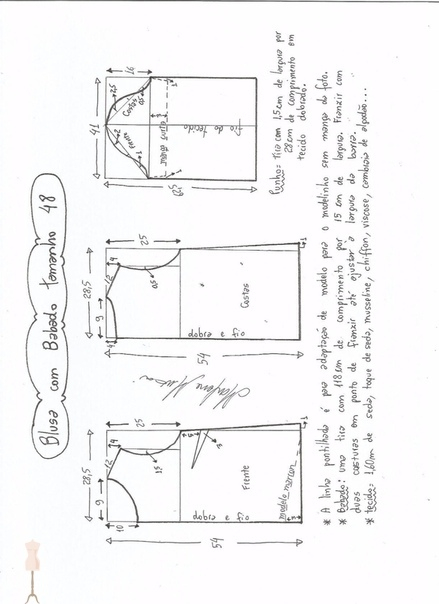 Blusa com Babado tamanho 48
28,5
9
12
4
25
10
15
3
Frente
dobra e fio
modelo marcan
1
54
28,5
9
12
4
25
Costas
dobra e fio
1
54
41
16
2,5
Costas
2
frente
1
manga curta
fio do tecido
65
Punho: tira com 1,5 cm de largura por
28 cm de comprimento em
tecido dobrado.
* A linha pontilhada é para adaptação de modelo para o modelinho sem manga da foto.
* Babado: uma tira com 118 cm de comprimento por 15 cm de largura. Franzir com
duas costuras em ponto de franzir até ajustar a largura da barra.
* tecido: 1,60m de seda, toque de seda, musseline, chiffon, viscose, cambraia de algodão...